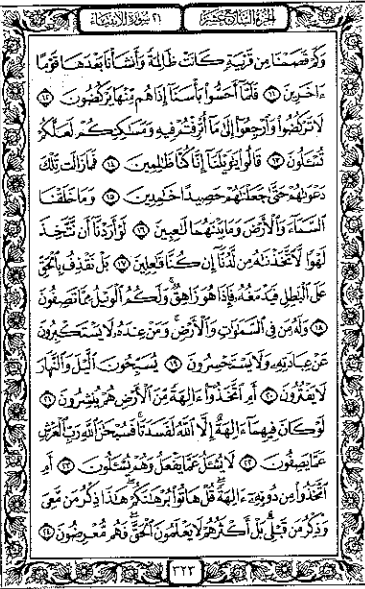 الجزء السابع عشر ٢١ سورة الأنبياء
وَكَمْ قَصَمْنَا مِن قَرْيَةٍ كَانَتْ ظَالِمَةً وَأَنشَأْنَا بَعْدَهَا قَوْمًا
ءَاخَرِينَ ١١ فَلَمَّآ أَحَسُّوا۟ بَأْسَنَآ إِذَا هُم مِّنْهَا يَرْكُضُونَ ١٢
لَا تَرْكُضُوا۟ وَٱرْجِعُوٓا۟ إِلَىٰ مَآ أُتْرِفْتُمْ فِيهِ وَمَسَٰكِنِكُمْ لَعَلَّكُمْ
تُسْـَٔلُونَ ١٣ قَالُوا۟ يَٰوَيْلَنَآ إِنَّا كُنَّا ظَٰلِمِينَ ١٤ فَمَا زَالَت تِّلْكَ
دَعْوَىٰهُمْ حَتَّىٰ جَعَلْنَٰهُمْ حَصِيدًا خَٰمِدِينَ ١٥ وَمَا خَلَقْنَا
ٱلسَّمَآءَ وَٱلْأَرْضَ وَمَا بَيْنَهُمَا لَٰعِبِينَ ١٦ لَوْ أَرَدْنَآ أَن نَّتَّخِذَ
لَهْوًا لَّٱتَّخَذْنَٰهُ مِن لَّدُنَّآ إِن كُنَّا فَٰعِلِينَ ١٧ بَلْ نَقْذِفُ بِٱلْحَقِّ
عَلَى ٱلْبَٰطِلِ فَيَدْمَغُهُۥ فَإِذَا هُوَ زَاهِقٌ ۚ وَلَكُمُ ٱلْوَيْلُ مِمَّا تَصِفُونَ
١٨ وَلَهُۥ مَن فِى ٱلسَّمَٰوَٰتِ وَٱلْأَرْضِ ۚ وَمَنْ عِندَهُۥ لَا يَسْتَكْبِرُونَ
عَنْ عِبَادَتِهِۦ وَلَا يَسْتَحْسِرُونَ ١٩ يُسَبِّحُونَ ٱلَّيْلَ وَٱلنَّهَارَ
لَا يَفْتُرُونَ ٢٠ أَمِ ٱتَّخَذُوٓا۟ ءَالِهَةً مِّنَ ٱلْأَرْضِ هُمْ يُنشِرُونَ ٢١
لَوْ كَانَ فِيهِمَآ ءَالِهَةٌ إِلَّا ٱللَّهُ لَفَسَدَتَا ۚ فَسُبْحَٰنَ ٱللَّهِ رَبِّ ٱلْعَرْشِ
عَمَّا يَصِفُونَ ٢٢ لَا يُسْـَٔلُ عَمَّا يَفْعَلُ وَهُمْ يُسْـَٔلُونَ ٢٣ أَمِ
ٱتَّخَذُوا۟ مِن دُونِهِۦٓ ءَالِهَةً ۖ قُلْ هَاتُوا۟ بُرْهَٰنَكُمْ ۖ هَٰذَا ذِكْرُ مَن مَّعِىَ
وَذِكْرُ مَن قَبْلِى ۗ بَلْ أَكْثَرُهُمْ لَا يَعْلَمُونَ ٱلْحَقَّ ۖ فَهُم مُّعْرِضُونَ ٢٤
٣٢٣